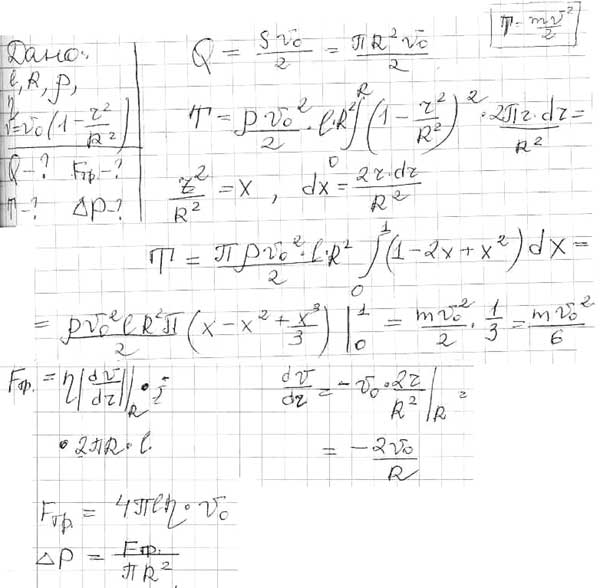 Дано:
l, R, ρ,
η
v=v₀(1-r²/R²)
Q-? Fтр.-?
T-? ΔP-?
Q = Sv₀/2 = πR²v₀/2
T = mv²/2
T = ρv₀²/2 · l·R² ∫₀ᴿ (1-r²/R²)² · 2πr·dr/R² =
r²/R² = x, dx = 2r·dr/R²
T = πρ·v₀²·l·R²/2 ∫₀¹ (1-2x+x²)dx =
= ρv₀²lR²π/2 (x-x²+x³/3) |₀¹ = mv₀²/2 · 1/3 = mv₀²/6
Fтр. = η|dv/dr||R ·
· 2πR·l.
dv/dr = -v₀·2r/R² |R =
= -2v₀/R
Fтр. = 4πlη·v₀
ΔP = Fтр./πR²